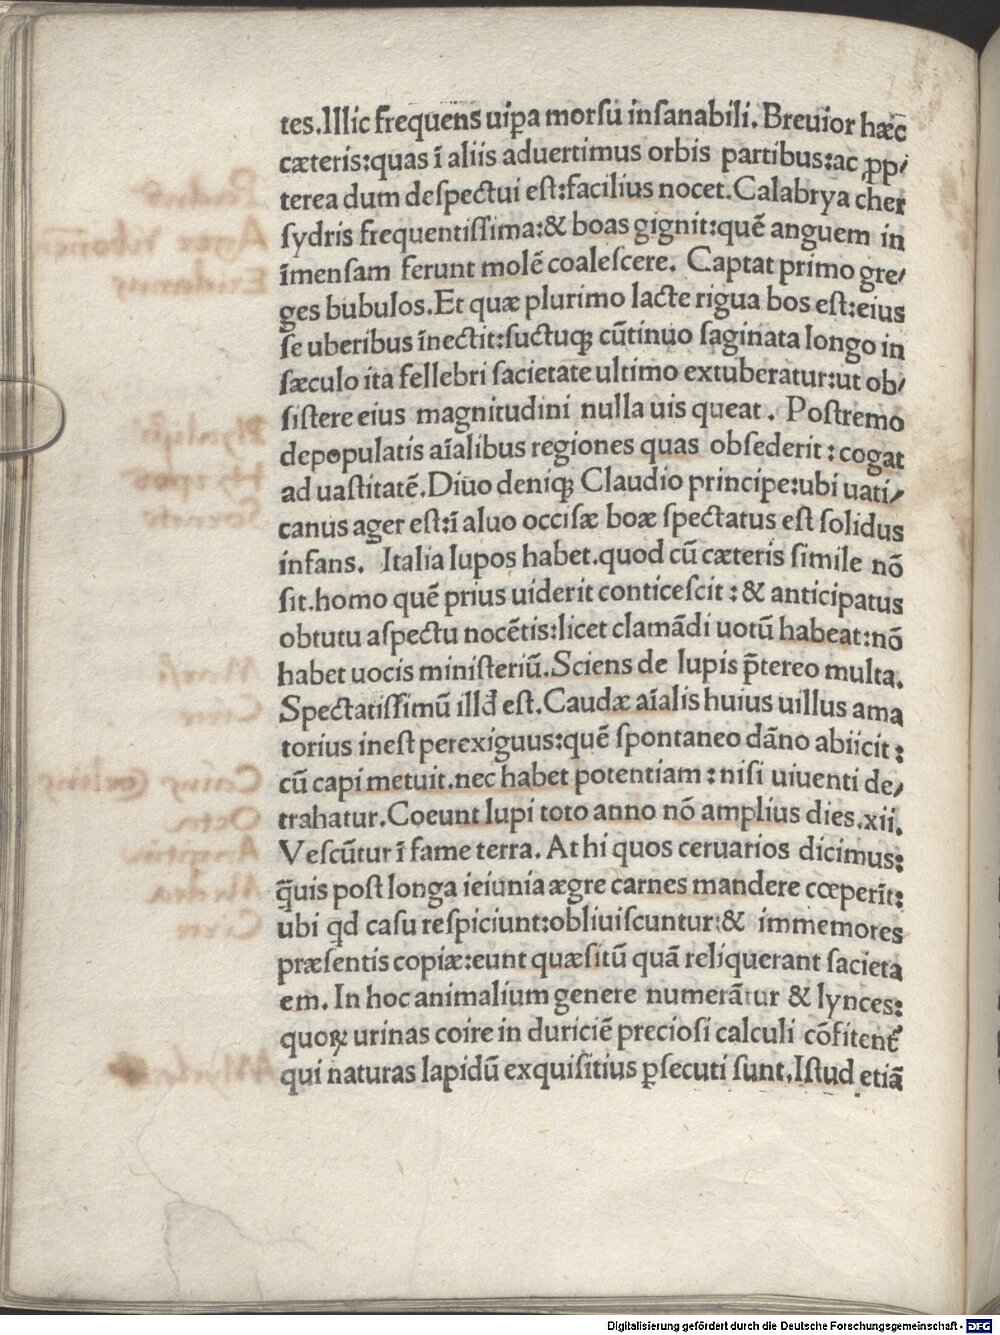 tes.Illic frequens uip̱a morſu inſanabili.Breuior hæc̄
cæteris:quas ī aliis aduertimus orbis partibus:ac ꝓp/
terea dum deſpectui eſt:facilius nocet.Calabrya cher
ſydris frequentiſſima:& boas gignit:quē anguem in
īmenſam ferunt molē coaleſcere. Captat primo gre/
ges bubulos.Et quæ plurimo lacte rigua bos eſt:eius
ſe uberibus īnectit:ſuctuqꝫ cūtinuo ſaginata longo in
ſæculo ita fellebri ſacietate ultimo extuberatur:ut ob/
ſiſtere eius magnitudini nulla uis queat. Poſtremo
depopulatis aīalibus regiones quas obſederit:cogat
ad uaſtitatē.Diuo deniqꝫ Claudio principe:ubi uati/
canus ager eſt:ī aluo occiſæ boæ ſpectatus eſt ſolidus
infans. Italia lupos habet.quod cū cæteris ſimile nō
ſit.homo quē prius uiderit conticeſcit:& anticipatus
obtutu aſpectu nocētis:licet clamādi uotū habeat:nō
habet uocis miniſteriū.Sciens de lupis p̄tereo multa.
Spectatiſſimū illđ eſt.Caudæ aīalis huius uillus ama
torius ineſt perexiguus:quē ſpontaneo dāno abiicit:
cū capi metuit.nec habet potentiam:niſi uiuenti de/
trahatur.Coeunt lupi toto anno nō amplius dies.xii.
Veſcūtur ī fame terra. At hi quos ceruarios dicimus:
q̄uis poſt longa ieiunia ægre carnes mandere cœperīt:
ubi qd caſu reſpiciunt:obliuiſcuntur:& immemores
præſentis copiæ:eunt quæſitū quā reliquerant ſacieta
em. In hoc animalium genere numerātur & lynces:
quoꝝ urinas coire in duriciē precioſi calculi cōfitent᷑
qui naturas lapidū exquiſitius ꝑſecuti ſunt.Iſtud etiā
Digitalisierung gefördert durch die Deutsche Forschungsgemeinschaft - DFG